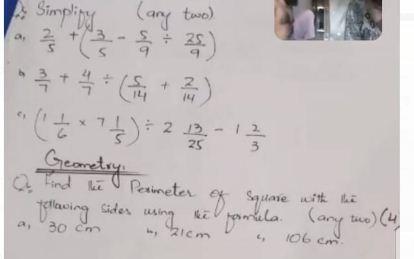 Q. Simplify (any two)
a, 2/5 + (3/5 - 5/9 ÷ 25/9)
b, 3/7 + 4/7 ÷ (5/14 + 2/14)
c, (1 1/6 × 7 1/5) ÷ 2 13/25 - 1 2/3
Geometry.
Q. Find the Perimeter of square with the
following sides using the formula. (any two) (4
a, 30 cm b, 21cm c, 106 cm.